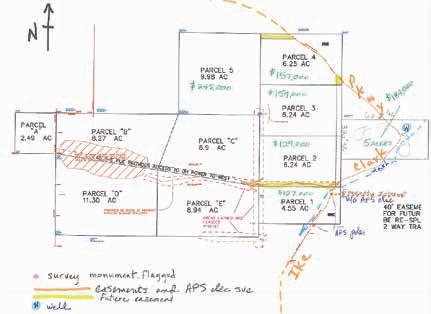 N
PARCEL 5
9.98 AC
$245,000
PARCEL 4
6.25 AC
$157,000
$159,000
PARCEL 3
6.24 AC
$129,000
PARCEL 2
6.24 AC
$127,000
PARCEL 1
4.55 AC
PARCEL "A"
2.49 AC
PARCEL "B"
8.27 AC
PARCEL "C"
8.9 AC
PARCEL "D"
11.30 AC
PARCEL "E"
8.94 AC
Pkwy
5 acres
Clark
W
APS pole
Ike
40' EASEME
FOR FUTUR
BE RE-SPL
2 WAY TRA
survey monument flagged
easements and APS elec svc
Future easement
W well